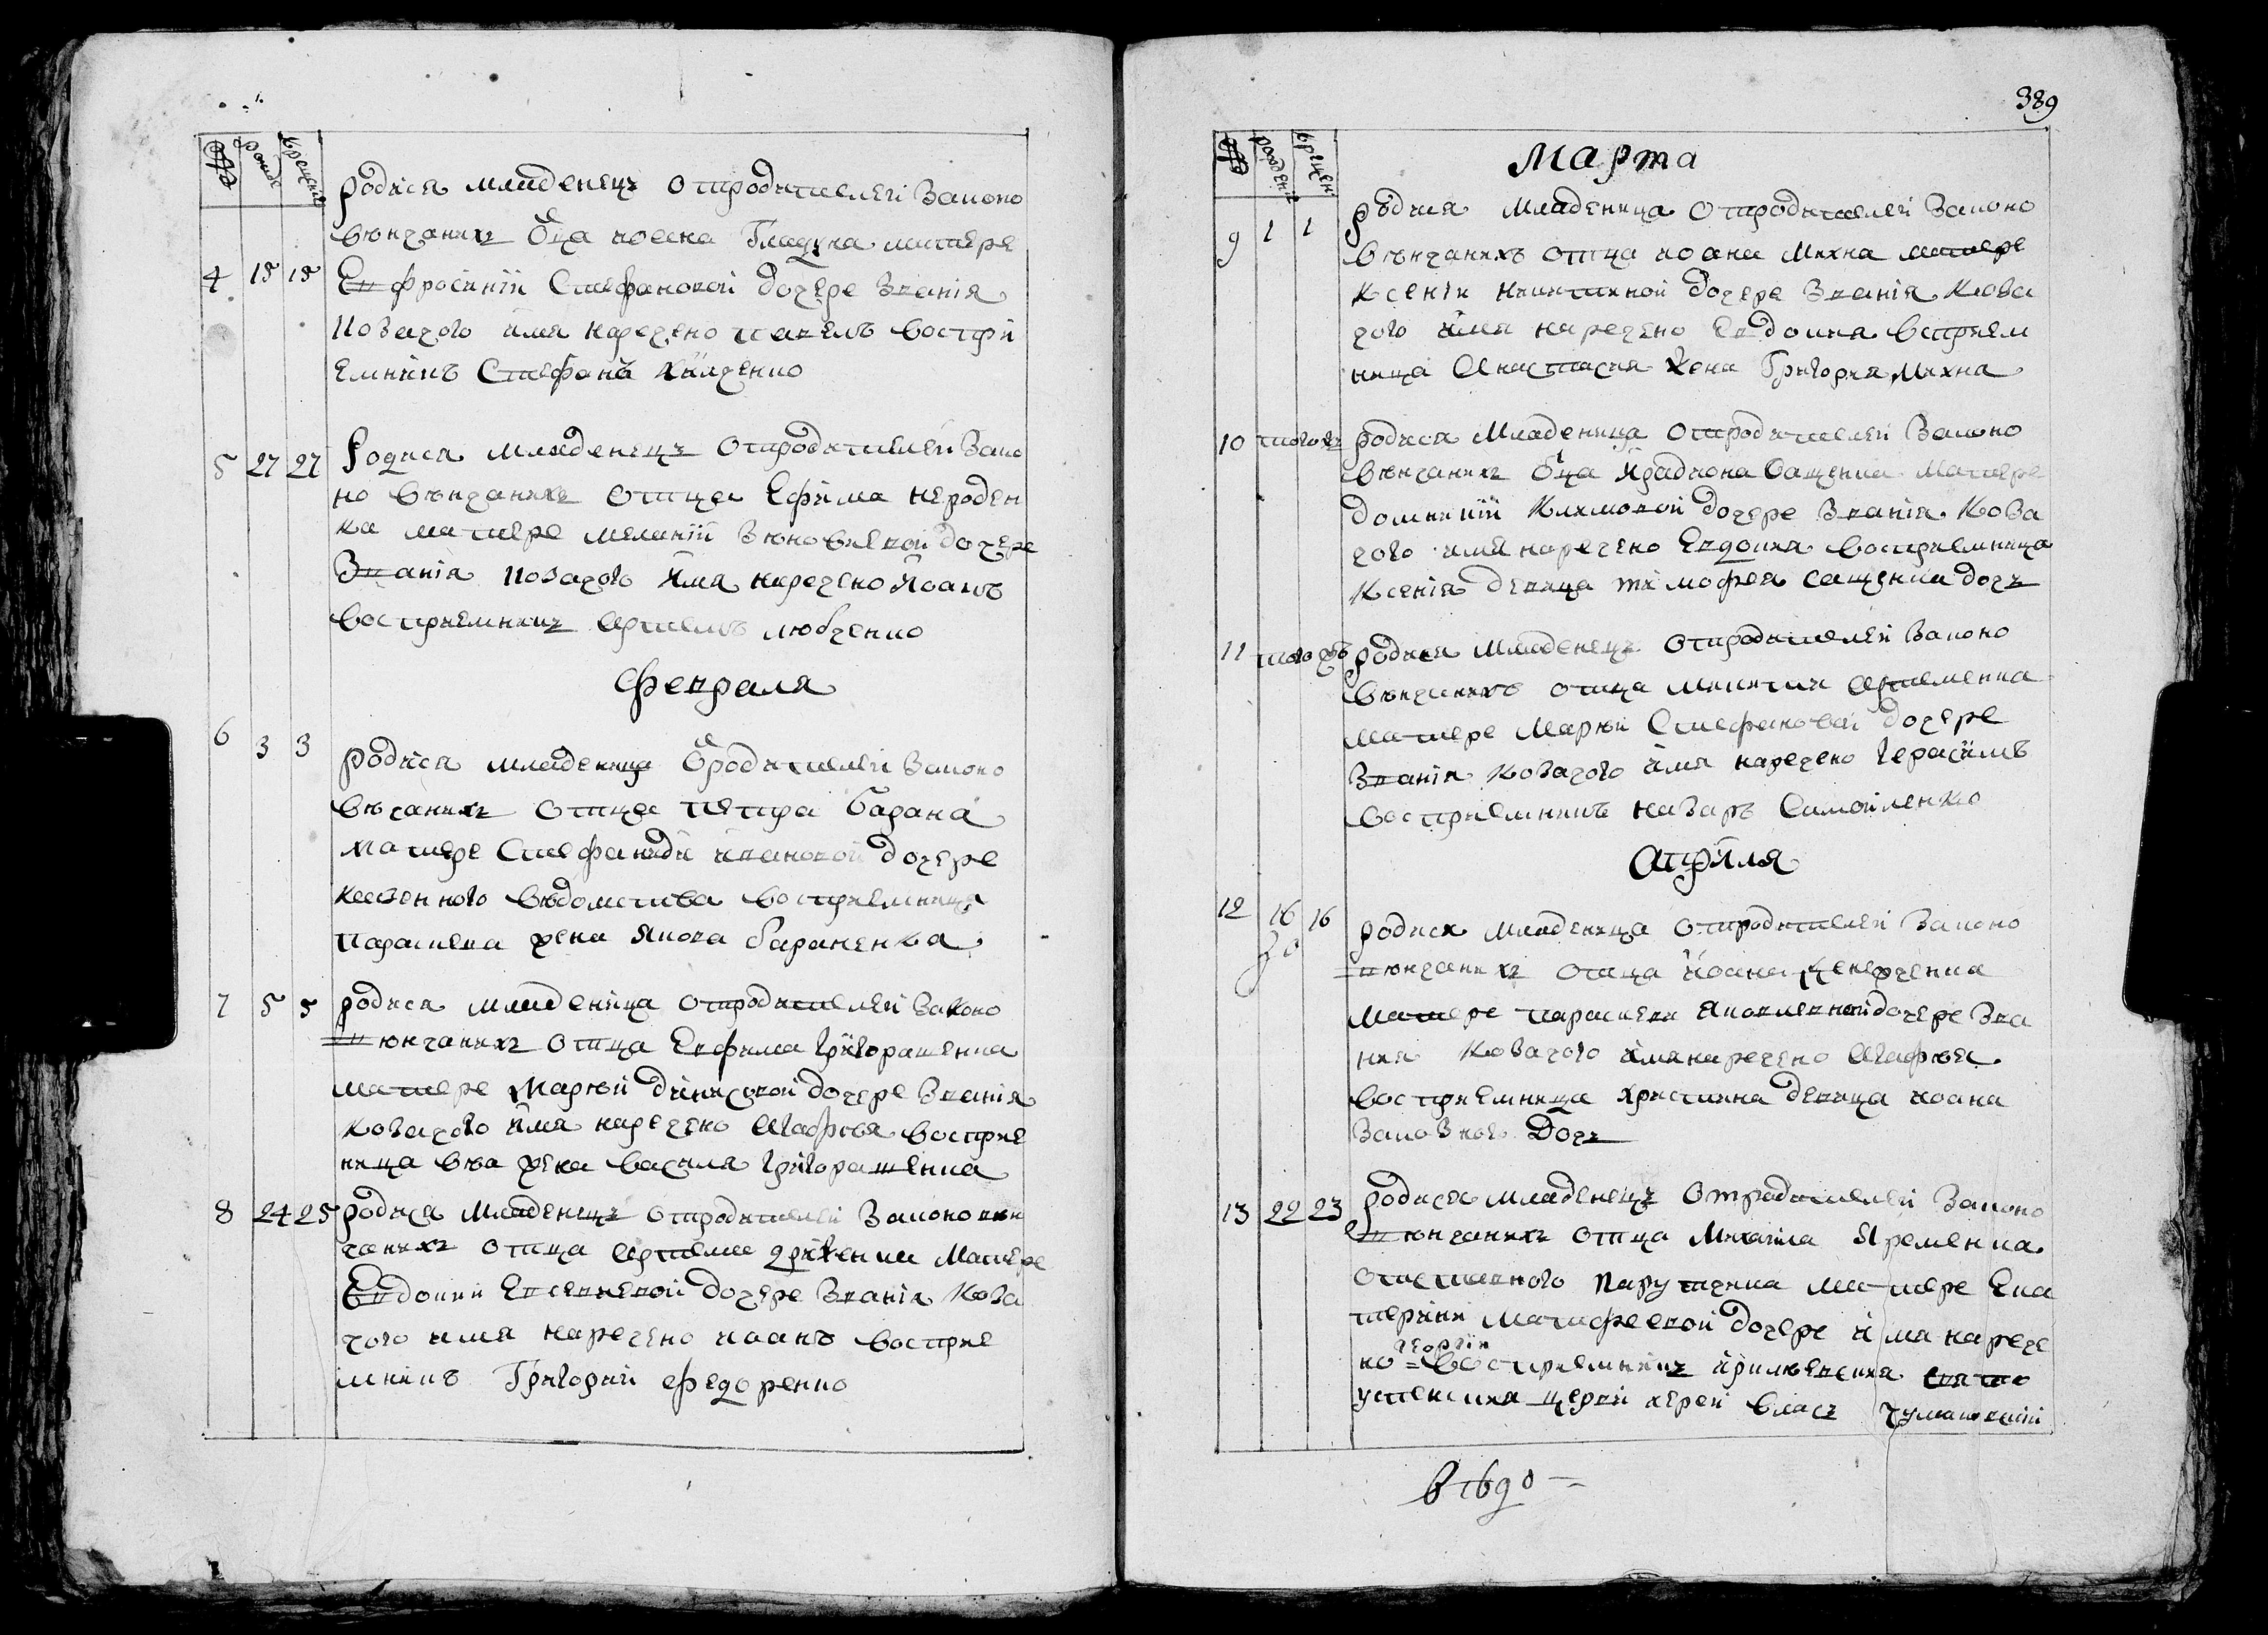 рожде
крещение
родися младенецъ отродителей Законо
вѣнчаних Ѿца иоана Гладуна матере
4 15 15 Евфросинїи Стефановой дочере Званія
Козачого имя наречено павелъ востри
емникъ Стефанъ
5 27 27 Родися младенецъ отродителей Зако
но вѣнчаних отца Ефима нероден
ка матере меланїи Зѣновиевой дочере
Званія Козачого имя наречено Иоанъ
восприемникъ Артемъ любченко
Февраля
6 3 3 родися младеница Ѿродителей Законо
вѣчаних отца петра барана
матере Стефаниди ивановой дочере
Казенного вѣдомства восприемница
параскева жена Якова бараненка
7 5 5 родися младеница отродителей Законо
вѣнчаних отца Евфима григорашенка
матере Марѣи динисовой дочере Званія
Козачого имя наречено Агафѣя восприе
ница Ева жена василя григорашенка
8 24 25 родися младенецъ отродителей Законовѣн
чаних отца Артема дриженки Матере
Евдокии Евсевиевой дочере Званія Коза
чого имя наречено иоанъ восприе
мникъ Григорий Федоренко
389
рождение
крещени
Марта
9 1 1 родися младеница отродителей Законо
вѣнчанихъ отца иоана Михна матере
Ксенїи Никитиной дочере Званія Коза
чого имя наречено Евдокия вструем
ница Анастасия жена Григория Михна
10 тогож родися Младеница отродителей Законо
вѣнчаних Ѿца Ирадиона Сащенка Матере
домникїи Климовой дочере Званія Коза
чого имя наречено Евдокия восприемница
Ксенія девица тимофея сащенка дочъ
11 того жъ родися Младенецъ отродителей Законо
вѣнчанихъ отца никити Артеменка
матере Марѣи Стефановой дочере
Званія Козачого имя наречено Герасимъ
восприемникъ назаръ Самойленко
Априля
12 16 16 родися младеница отродителей Законо
вѣнчаних отца иоана
матере параскеви Яковлевной дочере Зва
ния Козачого имя наречено Агафѣя
восприемница христина девица иоана
Дочъ
13 22 23 родися младенецъ отродителей Законо
вѣнчаних отца Михаила Яременка
отставного Парутчика матере Ека
терини Матфеевой дочере имя нарече
георгїи
но восприемникъ крилѣвския свято
успенския церкви иерей власъ